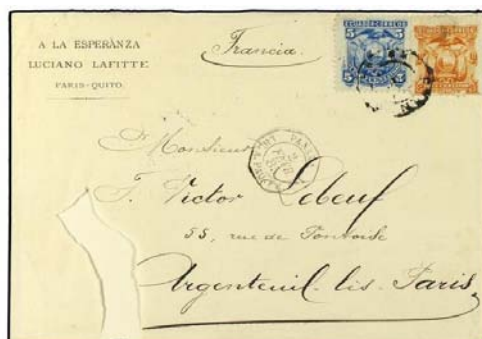 A LA ESPERÀNZA
LUCIANO LAFITTE
PARIS-QUITO.
Francia.
ECUADOR CORREOS
5 5
Monsieur
F. Victor Lebeuf
55, rue de Pontoise
Argenteuil lis Paris